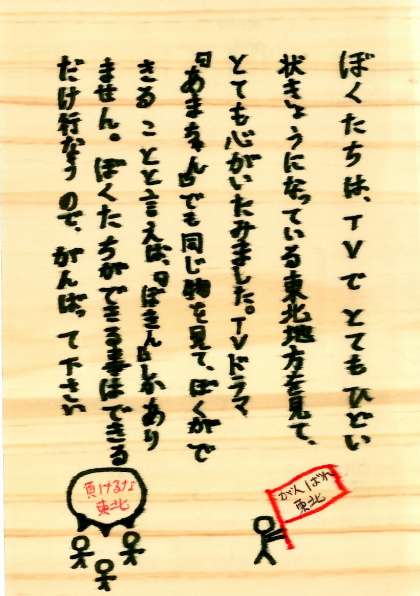 ぼくたちは、TVでとてもひどい
状きょうになっている東北地方を見て、
とても心がいたみました。TVドラマ
『あまちゃん』でも同じ物を見て、ぼくがで
きることと言えば、『ぼきん』しかあり
ません。ぼくたちができる事はできる
だけ行なうので、がんばって下さい
負けるな
東北
がんばれ
東北